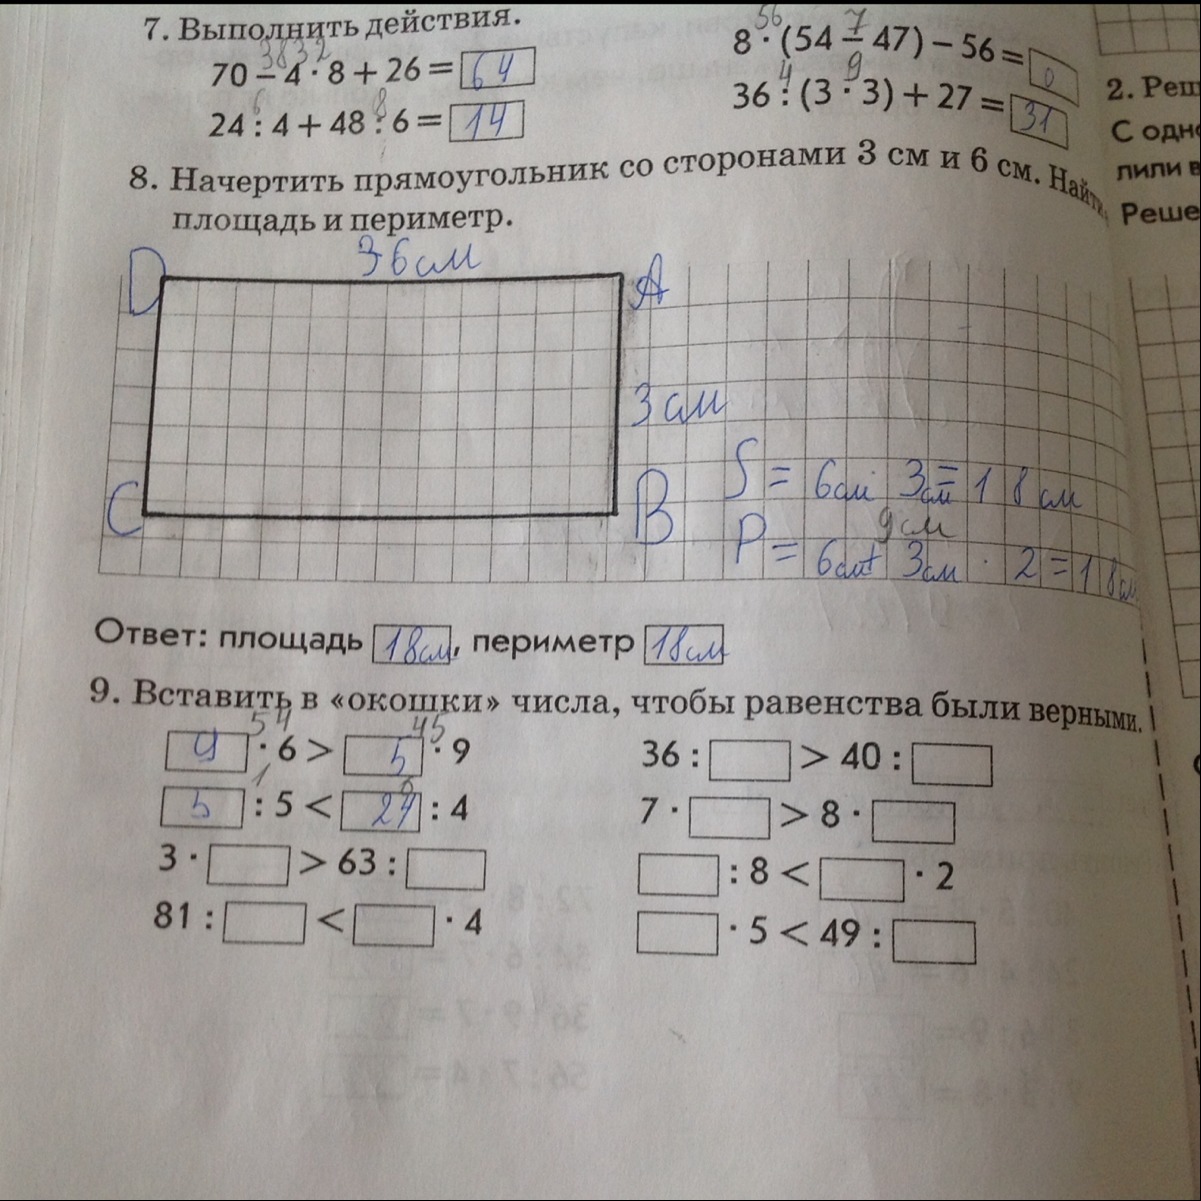 7. Выполнить действия.
38 32
70 – 4 · 8 + 26 = 64
6 8
24 : 4 + 48 : 6 = 14
56 7
8 · (54 – 47) – 56 = 0
4 9
36 : (3 · 3) + 27 = 31
8. Начертить прямоугольник со сторонами 3 см и 6 см. Найти
площадь и периметр.
D 36см A
3см
C B
S = 6см · 3см = 18см
9см
P = 6см + 3см · 2 = 18см
Ответ: площадь 18см, периметр 18см
9. Вставить в «окошки» числа, чтобы равенства были верными.
54 45
9 · 6 > 5 · 9
1 6
5 : 5 < 24 : 4
3 · > 63 :
81 : < · 4
36 : > 40 :
7 · > 8 ·
: 8 < · 2
· 5 < 49 :
2. Реш
С одно
лили в
Реше